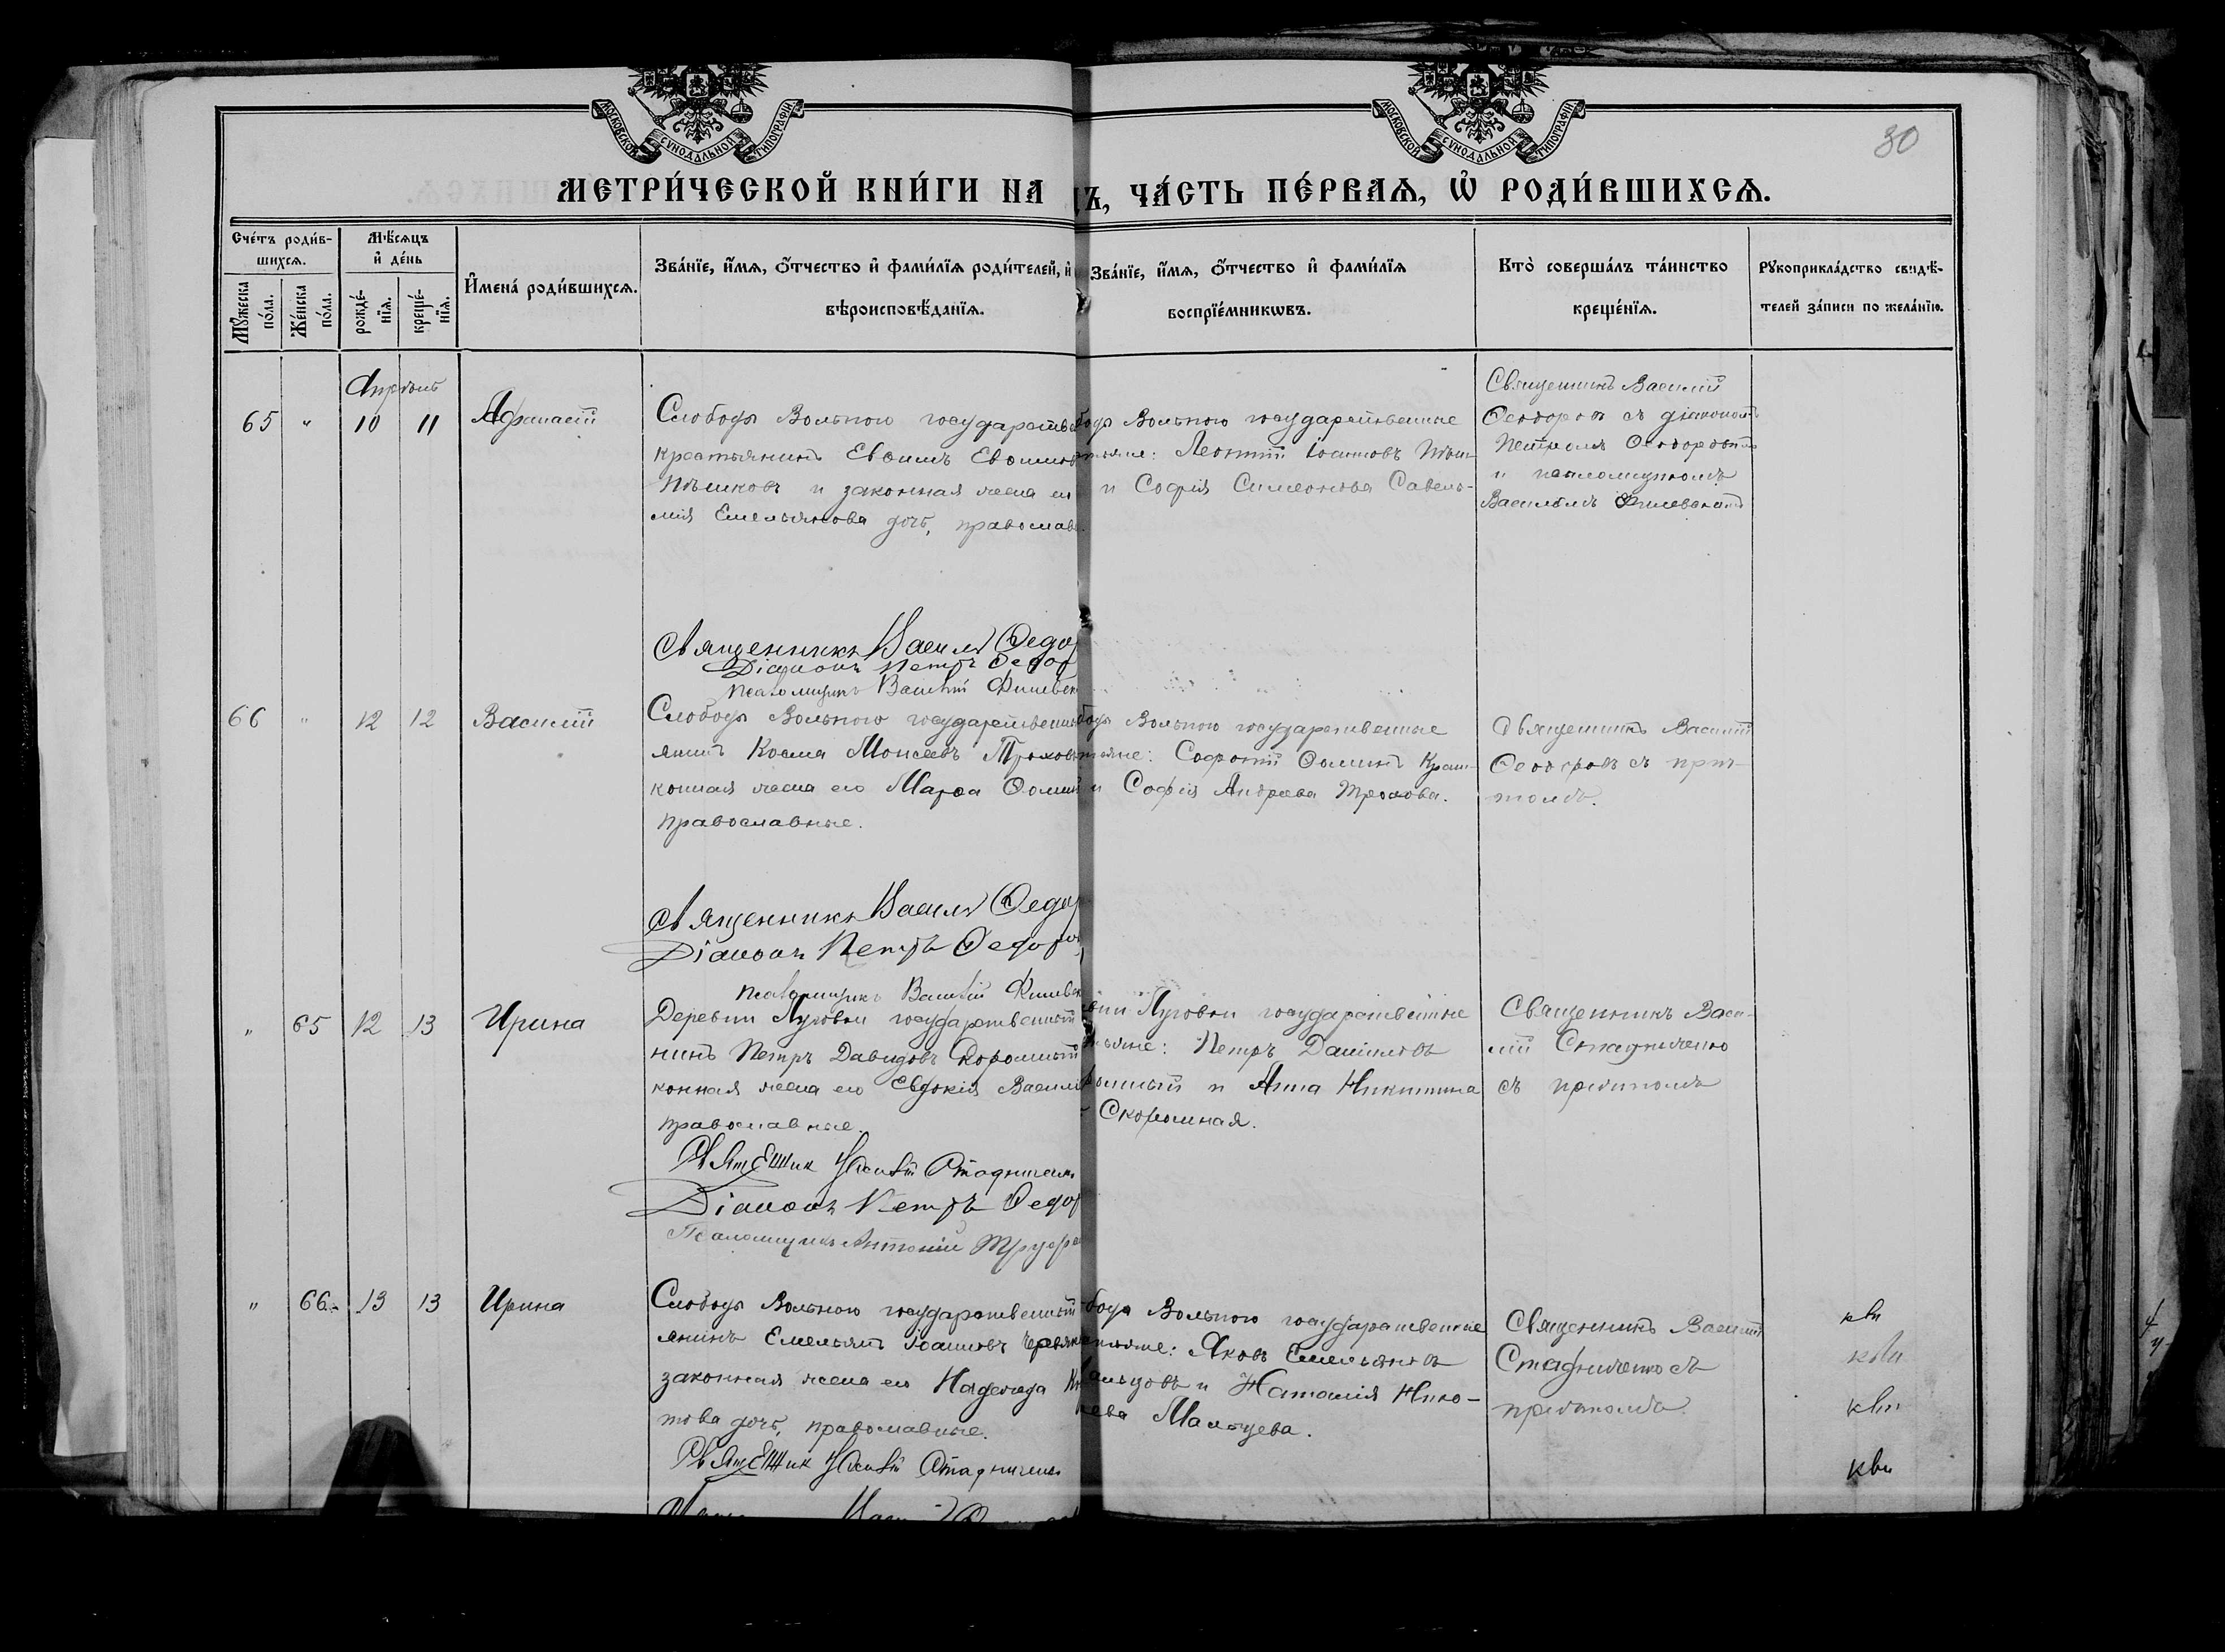 МОСКОВСКОЙ СѴНОДАЛЬНОЙ ТИПОГРАФІИ
МОСКОВСКОЙ СѴНОДАЛЬНОЙ ТИПОГРАФІИ
30
МЕТРИ́ЧЕСКОЙ КНИ́ГИ НА
Ъ, ЧА́СТЬ ПЕ́РВАѦ, Ѡ РОДИ́ВШИХСѦ.
Сче́тъ роди́в-
шихсѧ.
Мꙋ́жеска по́ла.
Же́нска по́ла.
Мѣ́сѧцъ
и҆ де́нь
рожде́-
нїѧ.
креще́-
нїѧ.
И҆мена́ роди́вшихсѧ.
Зва́нїе, и҆́мѧ, ѻ҆́тчество и҆ фами́лїѧ роди́телей, и҆
вѣроисповѣ́данїѧ.
Зва́нїе, и҆́мѧ, ѻ҆́тчество и҆ фами́лїѧ
воспрїе́мникѡвъ.
Кто̀ соверша́лъ та́инство
креще́нїѧ.
Рꙋкоприкла́дство свидѣ́-
телей за́писи по жела́нїю.
Апрѣль
65 " 10 11 Афанасій
Слободы Вольного государствен
крестьянинъ Евѳимъ Евѳимов
Пѣшковъ и законная жена ег
мія Емельянова дочь, православ
боды Вольного государственные
тьяне: Леонтій Іоанновъ Пѣш-
и Софія Симеонова Савель-
Священникъ Василій
Ѳеодоровъ съ діакономъ
Петромъ Ѳеодоровымъ
и псаломщикомъ
Василіемъ Филевскимъ
Священникъ Василій Ѳедор
Діаконъ Петръ Ѳедор
Псаломщикъ Василій Филевск
66 " 12 12 Василій
Слободы Вольного государственн
янинъ Косма Моисеевъ Трохов
конная жена его Марѳа Ѳомин
православные.
боды Вольного государственные
тьяне: Софоній Ѳоминъ Краш-
и Софія Андреева Трохова.
Священникъ Василій
Ѳеодоровъ съ прич-
томъ.
Священникъ Василій Ѳедор
Діаконъ Петръ Ѳедоров
Псаломщикъ Василій Филевск
" 65 12 13 Ирина
Деревни Луговки государственный
нинъ Петръ Давидовъ Скоромный
конная жена его Евдокія Васил
православные.
вни Луговки государственные
тьяне: Петръ Даніиловъ
омный и Анна Никитина
Скоромная.
Священникъ Васи-
лій Стадниченко
съ причтомъ
Священник Василій Стадниченк
Діаконъ Петръ Ѳедор
Псаломщикъ Антоній
" 66 13 13 Ирина
Слободы Вольного государственный
янинъ Емельянъ Іоанновъ
законная жена его Надежда
това дочь, православные.
бода Вольного государственные
тьяне: Яковъ Емельяновъ
альцовъ и Наталія Нико-
аева Мальцева.
Священникъ Василій
Стадниченко съ
причтомъ
Священник Василій Стадниченк